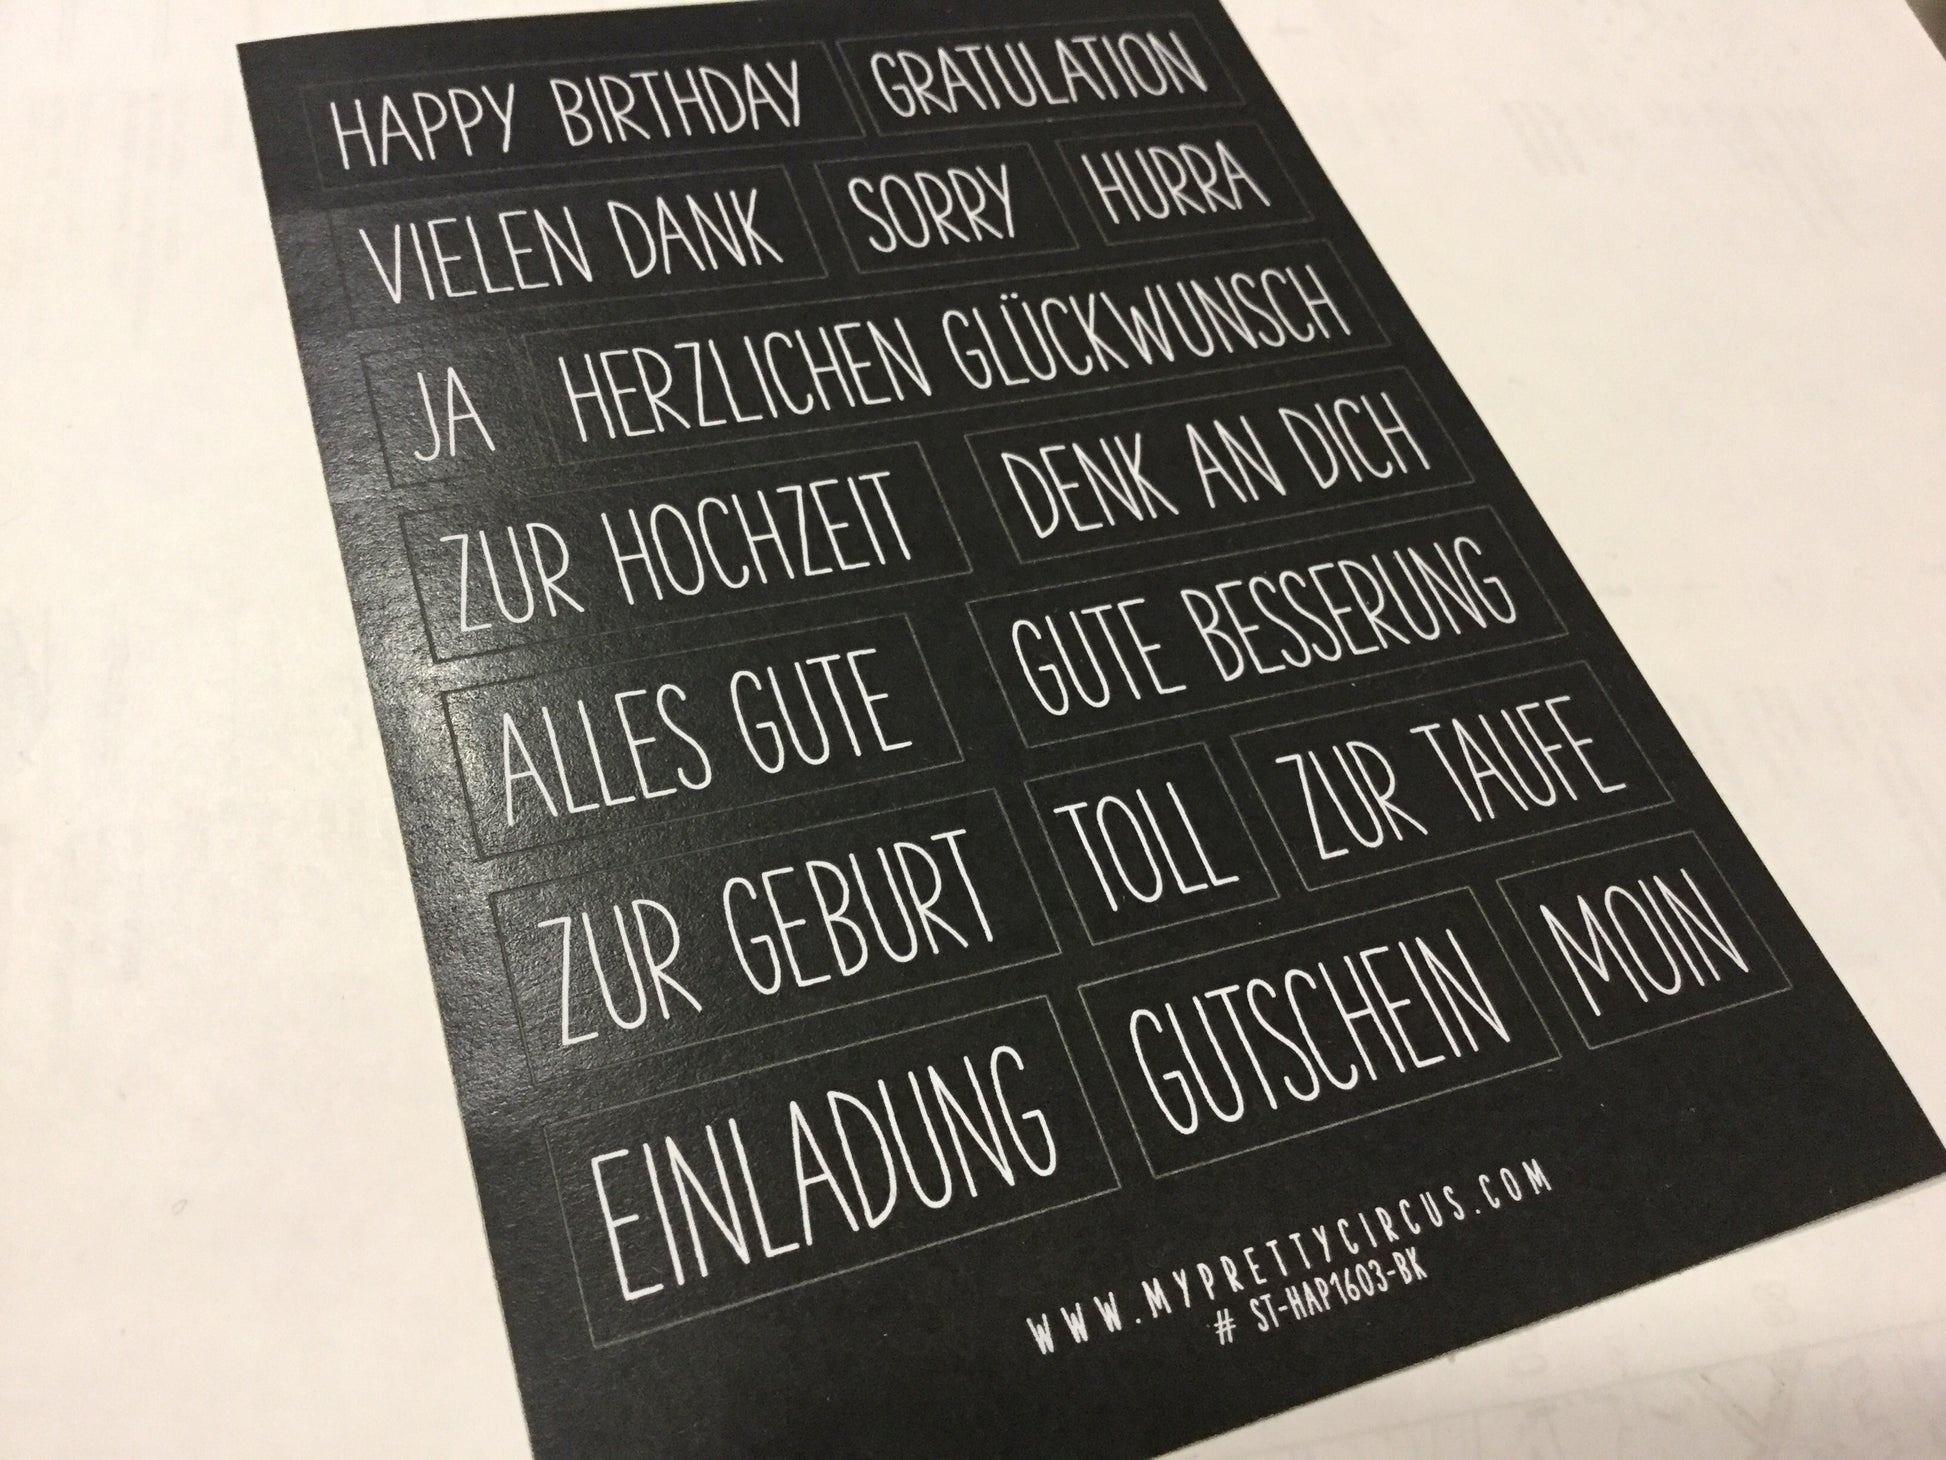 HAPPY BIRTHDAY GRATULATION
VIELEN DANK SORRY HURRA
JA HERZLICHEN GLÜCKWUNSCH
ZUR HOCHZEIT DENK AN DICH
ALLES GUTE GUTE BESSERUNG
ZUR GEBURT TOLL ZUR TAUFE
EINLADUNG GUTSCHEIN MOIN
WWW.MYPRETTYCIRCUS.COM
# ST-HAP1603-BK